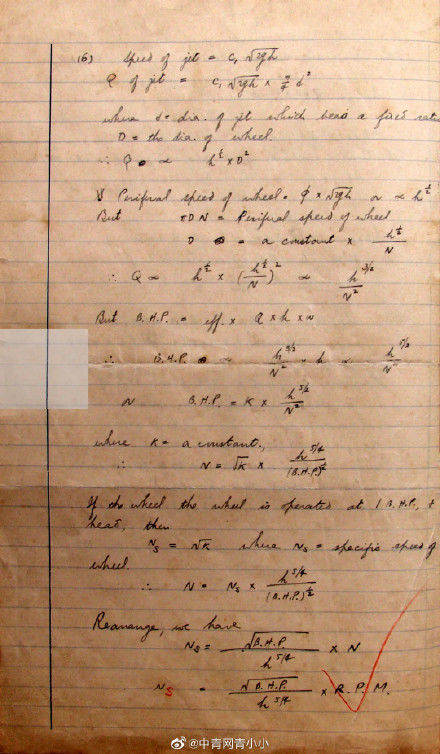 (6) Speed of jet = c, √2gh
Q of jet = c, √2gh × π/4 d²
where d = dia. of jet which bears a fixed ratio
D = the dia. of wheel.
∴ Q ∝ h^½ × D²
Periferal speed of wheel = φ × √2gh or ∝ h^½
But πDN = Periferal speed of wheel
D = a constant × h^½/N
∴ Q ∝ h^½ × (h^½/N)² ∝ h^3/2/N²
But B.H.P. = eff. × Q × h × w
∴ B.H.P. ∝ h^3/2/N² × h ∝ h^5/2/N²
or B.H.P. = K × h^5/2/N²
where K = a constant,
∴ N = √K × h^5/4/(B.H.P.)^½
If the wheel the wheel is operated at 1 B.H.P., +
heat, then
Ns = √K where Ns = specific speed of
wheel.
∴ N = Ns × h^5/4/(B.H.P.)^½
Rearrange, we have
Ns = √B.H.P./h^5/4 × N
Ns = √B.H.P./h^5/4 × R.P.M.
@中青网青小小